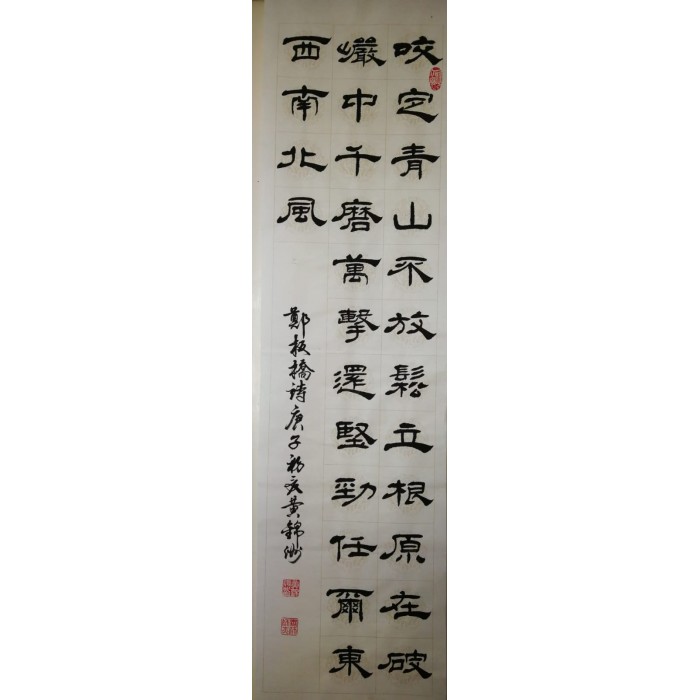 咬定青山不放鬆立根原在破
巖中千磨萬擊還堅勁任爾東
西南北風
鄭板橋詩庚子初夏黃錦洲